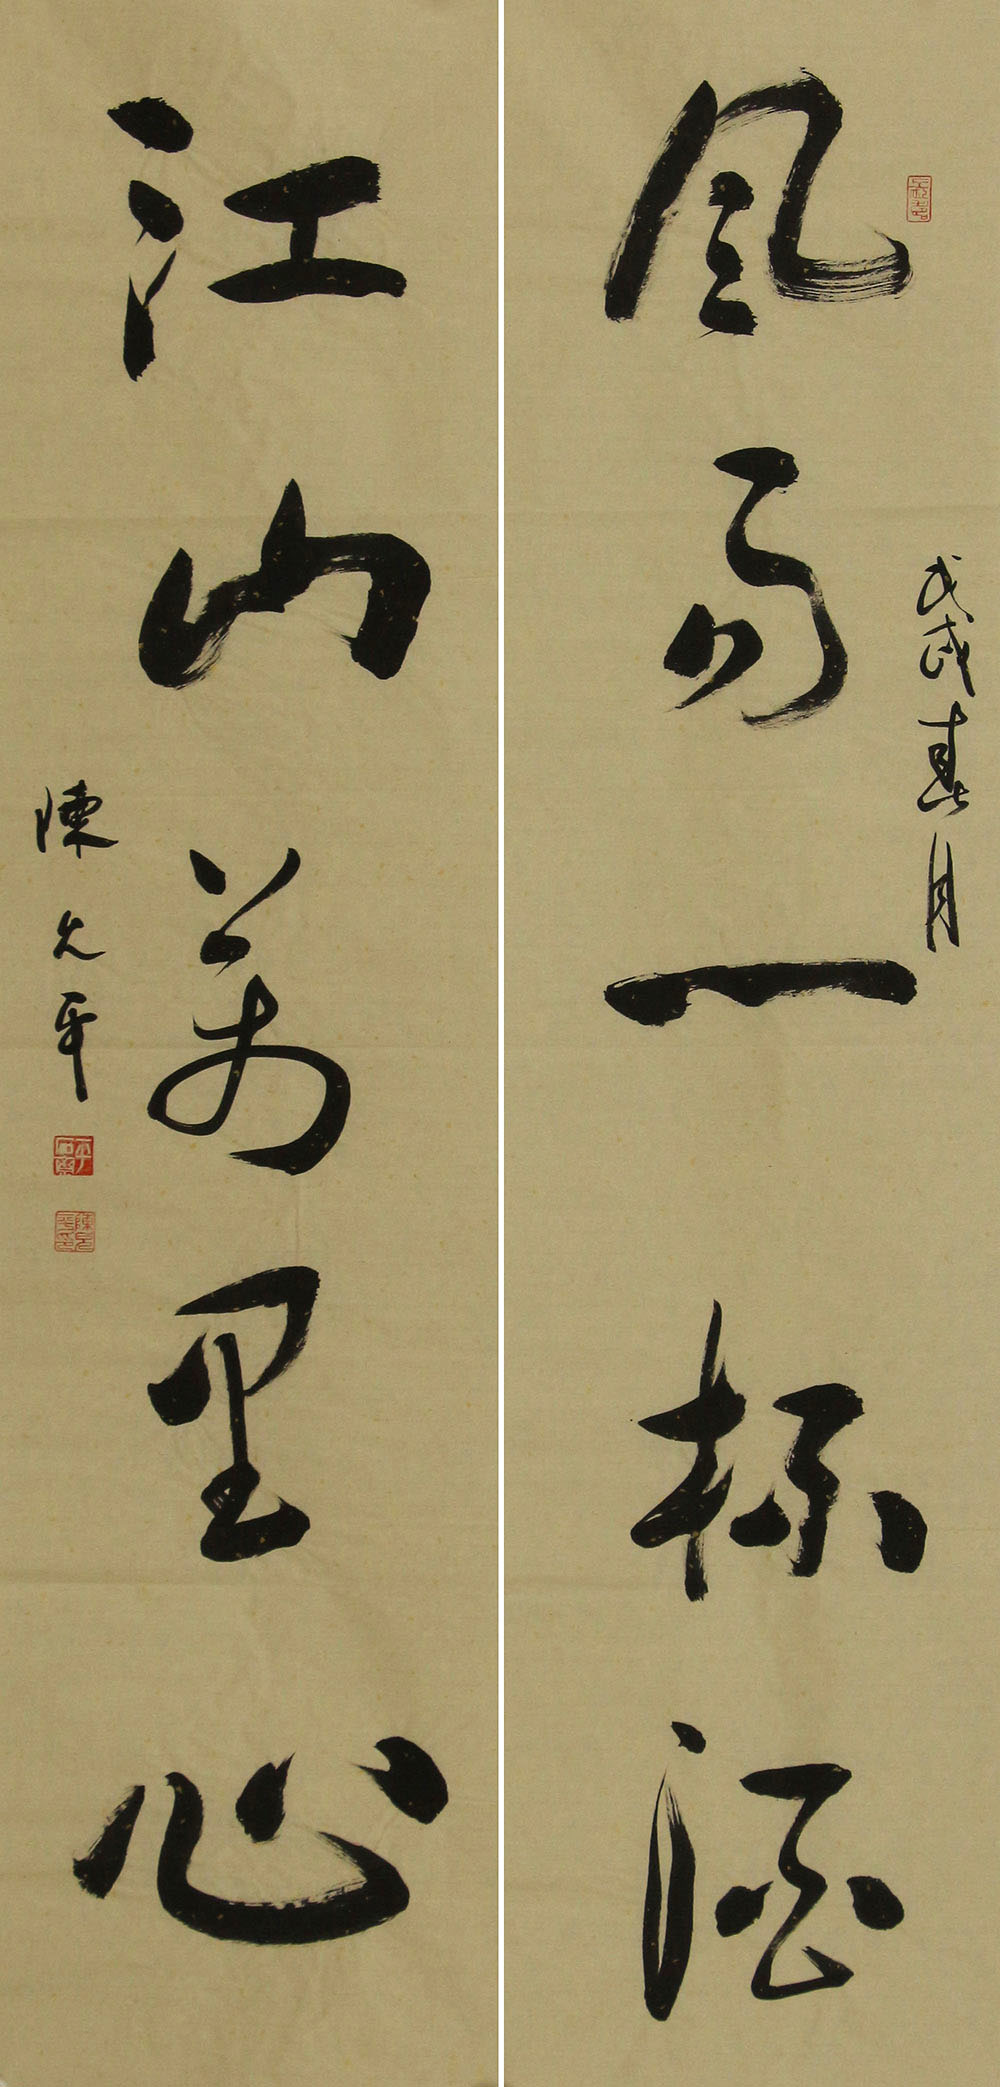 風雨一杯酒
戊戌春月
江山萬里心
陳允平